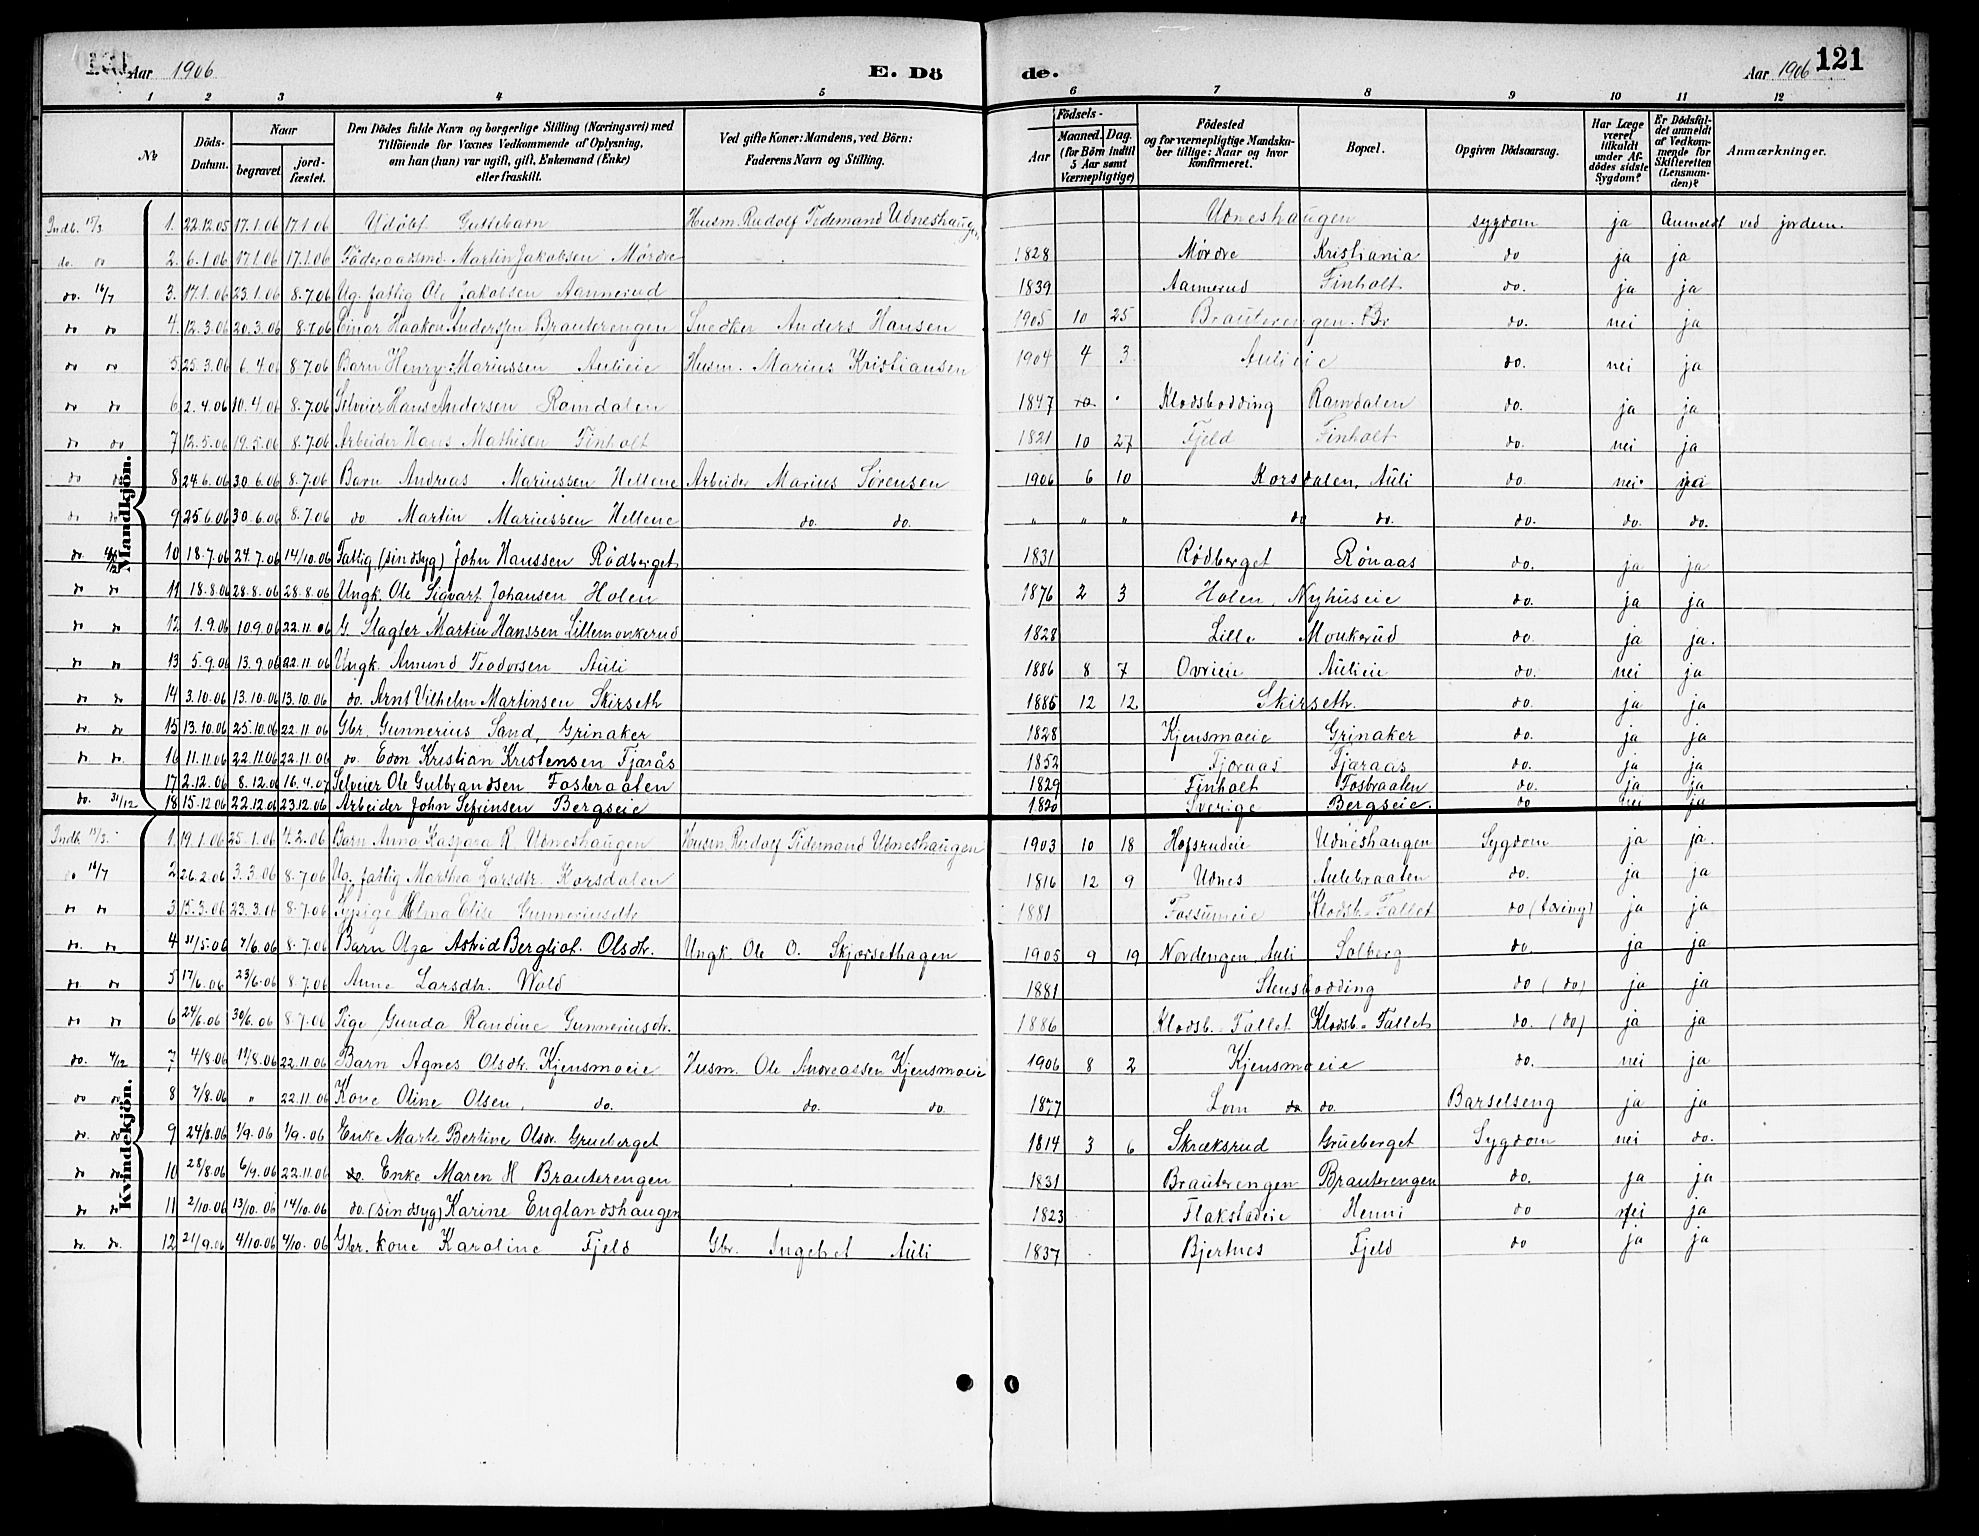 Aar 1906 E. Dö de. Aar 1906 121
1 2 3 4 5 6 7 8 9 10 11 12
Nr. Döds-Datum. Naar begravet jord-fæstet. Den Dödes fulde Navn og borgerlige Stilling (Næringsvei) med Tilföiende for Voxnes Vedkommende af Oplysning, om han (hun) var ugift, gift, Enkemand (Enke) eller fraskilt. Ved gifte Koner: Mandens, ved Börn: Faderens Navn og Stilling. Födsels- Aar Maaned. Dag. (for Börn indtil 5 Aar samt Værnepligtige) Födested og for værnepligtige Mandska-ber tillige: Naar og hvor konfirmeret. Bopæl. Opgiven Dödsaarsag. Har Læge været tilkaldt under Af-dödes sidste Sygdom? Er Dödsfal-det anmeldt af Vedkom-mende for Skifteretten (Lensman-den)? Anmærkninger.
Mandkjön.
Indb. 15/3 1. 22.12.05 17.1.06 17.1.06 Udöbt Guttebarn Husm. Rudolf Tidemand Udneshaugen Udneshaugen sygdom ja Anmeldt ved jordem.
do. do 2. 6.1.06 17.1.06 17.1.06 Föderaadsmd Martin Jakobsen Mørdre 1828 Mørdre Kristiania do ja ja
do. 16/7 3. 17.1.06 23.1.06 8.7.06 Ug. fattig Ole Jakobsen Aannerud 1839 Aannerud Finholt do. ja ja
do do 4. 12.3.06 20.3.06 8.7.06 Einar Haakon Anderssen Brauterengen Snedker Anders Hansen 1905 10 25 Brauterengen. Br do. nei ja
do do 5 25.3.06 6.4.06 8.7.06 Barn Henry Mariussen Aulieie Husm. Marius Kristiansen 1904 4 3. Aulieie do. nei ja
do do 6. 2.4.06 10.4.06 8.7.06 Selveier Hans Andersen Ramdalen 1847 Klodsbodding Ramdalen do. ja ja
do do 7 12.5.06 19.5.06 8.7.06 Arbeider Hans Mathisen Finholt 1821 10 27 Fjeld Finholt do. nei ja
do do 8 24.6.06 30.6.06 8.7.06 Barn Andreas Mariussen Hellene Arbeider Marius Sørensen 1906 6 10 Korsdalen, Auli do. nei. ja
do do 9 25.6.06 30.6.06 8.7.06 do Martin Mariussen Hellene do. do. " " " do do. do. do. do.
do. 4/12 10 18.7.06 24.7.06 14/10.06 Fattig (sindsyg) John Hanssen Rödberget 1831 Rödberget Rönaas do. ja ja
do do 11 18.8.06 28.8.06 28.8.06 Ungk. Ole Sigvart Johansen Holen 1876 2 3 Holen, Nyhuseie do. ja ja
do do 12 1.9.06 10.9.06 22.11.06 G. Slagter Martin Hanssen Lillemonkerud 1828 Lille Monkerud do. ja ja.
do do 13 5.9.06 13.9.06 22.11.06 Ungk. Amund Teodorsen Auli 1886 8 7 Ovrieie Aulieie do. nei ja
do do 14 3.10.06 13.10.06 13.10.06 do. Arnt Vilhelm Martinsen Skirseth 1885 12 12 Skirseth. do. ja ja
do do 15 13.10.06 25.10.06 22.11.06 Gbr. Gunnerius Sand, Grinaker 1828 Kjensmoeie Grinaker do. ja ja
do do. 16 11.11.06 22.11.06 22.11.06 do. Edon Kristian Kristensen Fjarås 1852 Fjoraas Fjaraas do. ja ja
17 2.12.06 8.12.06 16.4.07 Selveier Ole Gulbrandsen Fosbraaten 1829 Finholt Fosbraaten do. ja ja
do. 31/12 18 15.12.06 22.12.06 23.12.06 Arbeider John Sefrinsen Bergseie 1820 Sverige Bergseie. do nei ja
Kvindekjön.
Indb. 15/3. 1. 19.1.06 25.1.06 4.2.06 Barn Anna Kaspara R Udneshaugen Husm Rudolf Tidemand Udneshaugen 1903 10 18 Hofsrudeie Udneshaugen Sygdom ja ja.
do 16/7 2 26.2.06 3.3.06 8.7.06 Ug. fattig Marthea Larsdtr. Korsdalen 1816 12 9 Udnes Aulibraaten do. ja ja
do do 3 15.3.06 23.3.06 8.7.06 Elise Gunneriusdtr 1881 Fossumeie Klodsb. Fallet do (tæring) ja ja
do. do 4 31/5.06 7/6.06 8.7.06 Barn Olga Astrid Bergliot. Olsdtr. Ungk. Ole O. Skjørsethagen 1905 9 19 Nordengen, Auli Solberg do. ja ja
do do 5 17/6.06 23/6.06 8.7.06 Anne Larsdtr. Wold 1881 Stensbodding do (do) ja ja
do do 6 24/6.06 30/6.06 8.7.06 Pige Gunda Randine Gunneriusdtr. 1886 Klodsb. Fallet Klodsb. Fallet do. (do) ja ja
do. 4/12 7 4/8.06 11/8.06 22.11.06 Barn Agnes Olsdtr. Kjensmoeie Husm. Ole Andreassen Kjensmoeie 1906 8 2 Kjensmoeie do. nei ja
do do 8 7/8.06 " 22.11.06 Kone Oline Olsen. do. do. do. 1877 Lom do do. Barselseng ja ja
do. do 9 24/8.06 1/9.06 1/9.06 Enke Marte Bertine Olsdr. Grueberget 1814 3 6 Skræksrud Grüeberget Sygdom nei do.
do do 10 28/8.06 6/9.06 22.11.06 do. Enke Maren H Brauterengen 1831 Brauterengen Brauterengen do. ja ja
do do 11 2/10.06 13/10.06 14/10.06 do. (sindsyg) Karine Englandshaugen 1823 Flakstadeie Henni do nei ja
do. do. 12 21/9.06 4/10.06 4/10.06 Gbr. kone Karoline Fjeld Gbr. Ingebret Auli 1837 Bjertnes Fjeld do ja ja